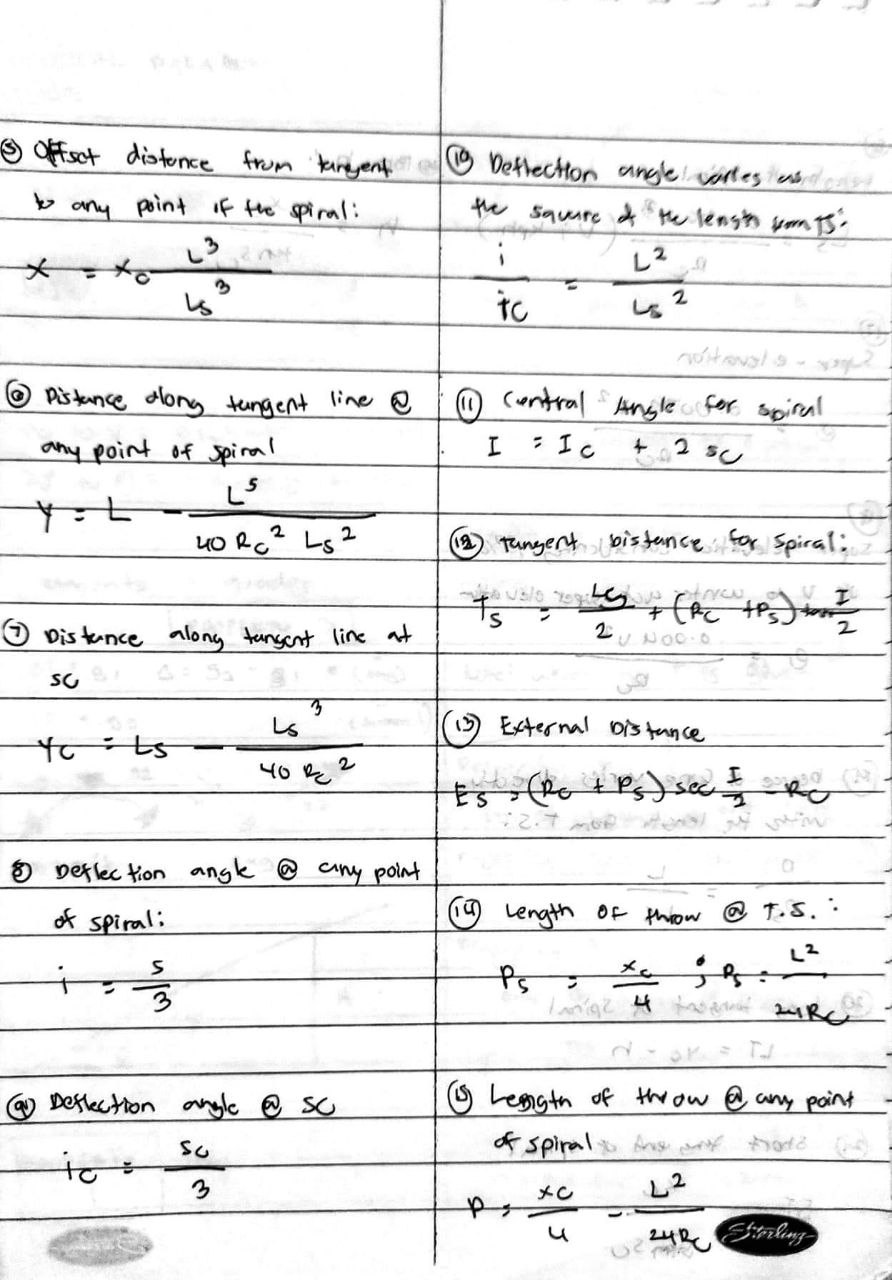 ⑤ Offset distance from tangent
to any point if the spiral:
x = xc L³ / Ls³
⑥ Distance along tangent line @
any point of spiral
Y = L - L⁵ / 40 Rc² Ls²
⑦ Distance along tangent line at
SC
Yc = Ls - Ls³ / 40 Rc²
⑧ Deflection angle @ any point
of spiral:
i = s / 3
⑨ Deflection angle @ SC
ic = sc / 3
⑩ Deflection angle varies as
the square of the length from TS:
i / ic = L² / Ls²
⑪ Central Angle for spiral
I = Ic + 2 sc
⑫ Tangent Distance for spiral:
Ts = Ls / 2 + (Rc + Ps) tan I / 2
⑬ External Distance
Es = (Rc + Ps) sec I / 2 - Rc
⑭ Length of throw @ T.S. :
Ps = xc / 4 ; Ps = L² / 24Rc
⑮ Length of throw @ any point
of spiral
P = xc / 4 = L² / 24Rc
Sterling